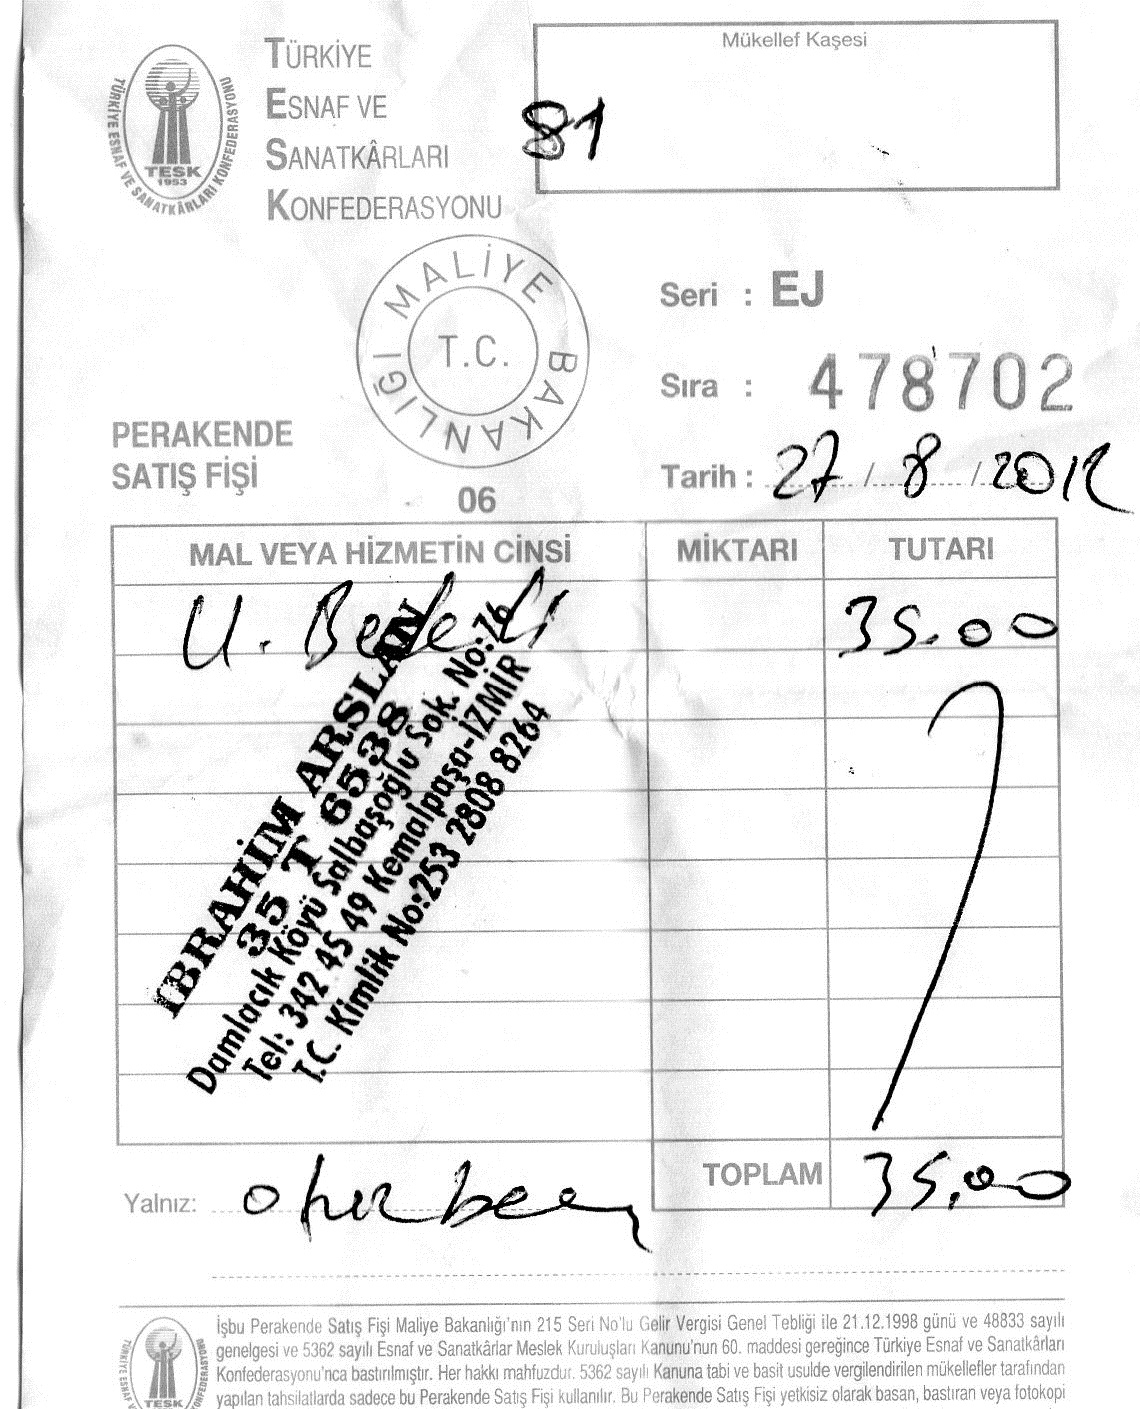 TÜRKİYE
ESNAF VE
SANATKÂRLARI
KONFEDERASYONU
TÜRKİYE ESNAF VE SANATKÂRLARI KONFEDERASYONU
TESK
1953
Mükellef Kaşesi
81
MALİYE BAKANLIĞI
T.C.
06
Seri : EJ
Sıra : 478702
Tarih : 27 / 8 / 2012
PERAKENDE
SATIŞ FİŞİ
MAL VEYA HİZMETİN CİNSİ MİKTARI TUTARI
U. Bedeli 35.00
İBRAHİM ARSLAN
35 T 6538
Damlacık Köyü Salbaşoğlu Sok. No:76
Tel: 342 45 49 Kemalpaşa-İZMİR
T.C. Kimlik No:253 2808 8264
TOPLAM 35,00
Yalnız: otuzbeş
İşbu Perakende Satış Fişi Maliye Bakanlığı'nın 215 Seri No'lu Gelir Vergisi Genel Tebliği ile 21.12.1998 günü ve 48833 sayılı
genelgesi ve 5362 sayılı Esnaf ve Sanatkârlar Meslek Kuruluşları Kanunu'nun 60. maddesi gereğince Türkiye Esnaf ve Sanatkârları
Konfederasyonu'nca bastırılmıştır. Her hakkı mahfuzdur. 5362 sayılı Kanuna tabi ve basit usulde vergilendirilen mükellefler tarafından
yapılan tahsilatlarda sadece bu Perakende Satış Fişi kullanılır. Bu Perakende Satış Fişi yetkisiz olarak basan, bastıran veya fotokopi
TESK